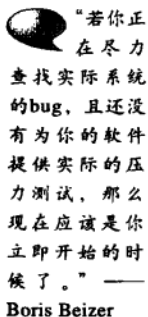 “若你正
在尽力
查找实际系统
的bug，且还没
有为你的软件
提供实际的压
力测试，那么
现在应该是你
立即开始的时
候了。”——
Boris Beizer